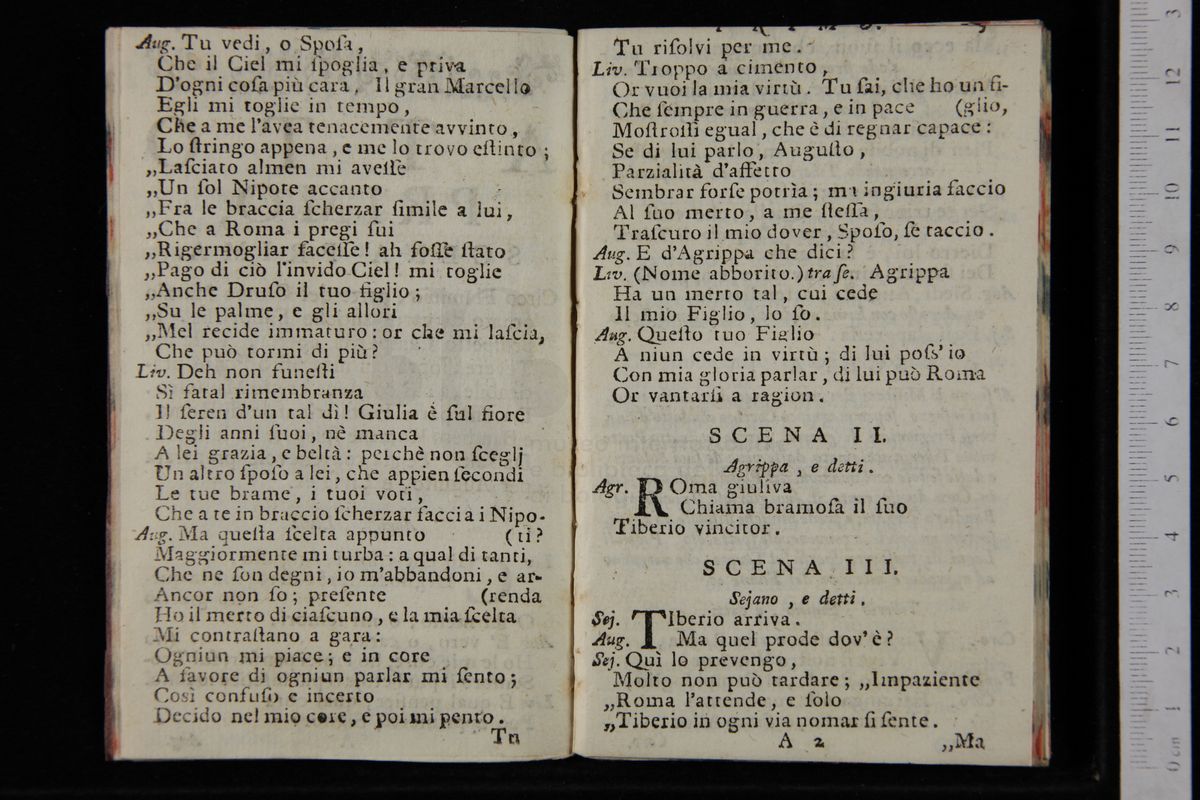 Aug. Tu vedi, o Spoſa,
Che il Ciel mi ſpoglia, e priva
D'ogni coſa più cara. Il gran Marcello
Egli mi toglie in tempo,
Che a me l'avea tenacemente avvinto,
Lo ſtringo appena, e me lo trovo eſtinto;
„Laſciato almen mi aveſſe
„Un ſol Nipote accanto
„Fra le braccia ſcherzar ſimile a lui,
„Che a Roma i pregi ſui
„Rigermogliar faceſſe! ah foſſe ſtato
„Pago di ciò l'invido Ciel! mi toglie
„Anche Druſo il tuo figlio;
„Su le palme, e gli allori
„Mel recide immaturo: or che mi laſcia,
Che può tormi di più?
Liv. Deh non funeſti
Sì fatal rimembranza
Il ſeren d'un tal dì! Giulia è ſul fiore
Degli anni ſuoi, nè manca
A lei grazia, e beltà: perchè non ſceglj
Un altro ſpoſo a lei, che appien ſecondi
Le tue brame, i tuoi voti,
Che a te in braccio ſcherzar faccia i Nipo-
Aug. Ma queſta ſcelta appunto (ti?
Maggiormente mi turba: a qual di tanti,
Che ne ſon degni, io m'abbandoni, e ar-
Ancor non ſo; preſente (renda
Ho il merto di ciaſcuno, e la mia ſcelta
Mi contraſtano a gara:
Ogniun mi piace; e in core
A favore di ogniun parlar mi ſento;
Così confuſo e incerto
Decido nel mio core, e poi mi pento.
Tu
PRIMO. 3
Tu riſolvi per me.
Liv. Troppo a cimento,
Or vuoi la mia virtù. Tu ſai, che ho un fi-
Che ſempre in guerra, e in pace (glio,
Moſtroſſi egual, che è di regnar capace:
Se di lui parlo, Auguſto,
Parzialità d'affetto
Sembrar forſe potrìa; ma ingiuria faccio
Al ſuo merto, a me ſteſſa,
Traſcuro il mio dover, Spoſo, ſe taccio.
Aug. E d'Agrippa che dici?
Liv. (Nome abborito.) tra ſe. Agrippa
Ha un merto tal, cui cede
Il mio Figlio, lo ſo.
Aug. Queſto tuo Figlio
A niun cede in virtù; di lui poſs'io
Con mia gloria parlar, di lui può Roma
Or vantarſi a ragion.
SCENA II.
Agrippa, e detti.
Agr. ROma giuliva
Chiama bramoſa il ſuo
Tiberio vincitor.
SCENA III.
Sejano, e detti.
Sej. TIberio arriva.
Aug. Ma quel prode dov'è?
Sej. Quì lo prevengo,
Molto non può tardare; „Impaziente
„Roma l'attende, e ſolo
„Tiberio in ogni via nomar ſi ſente.
A 2 „Ma